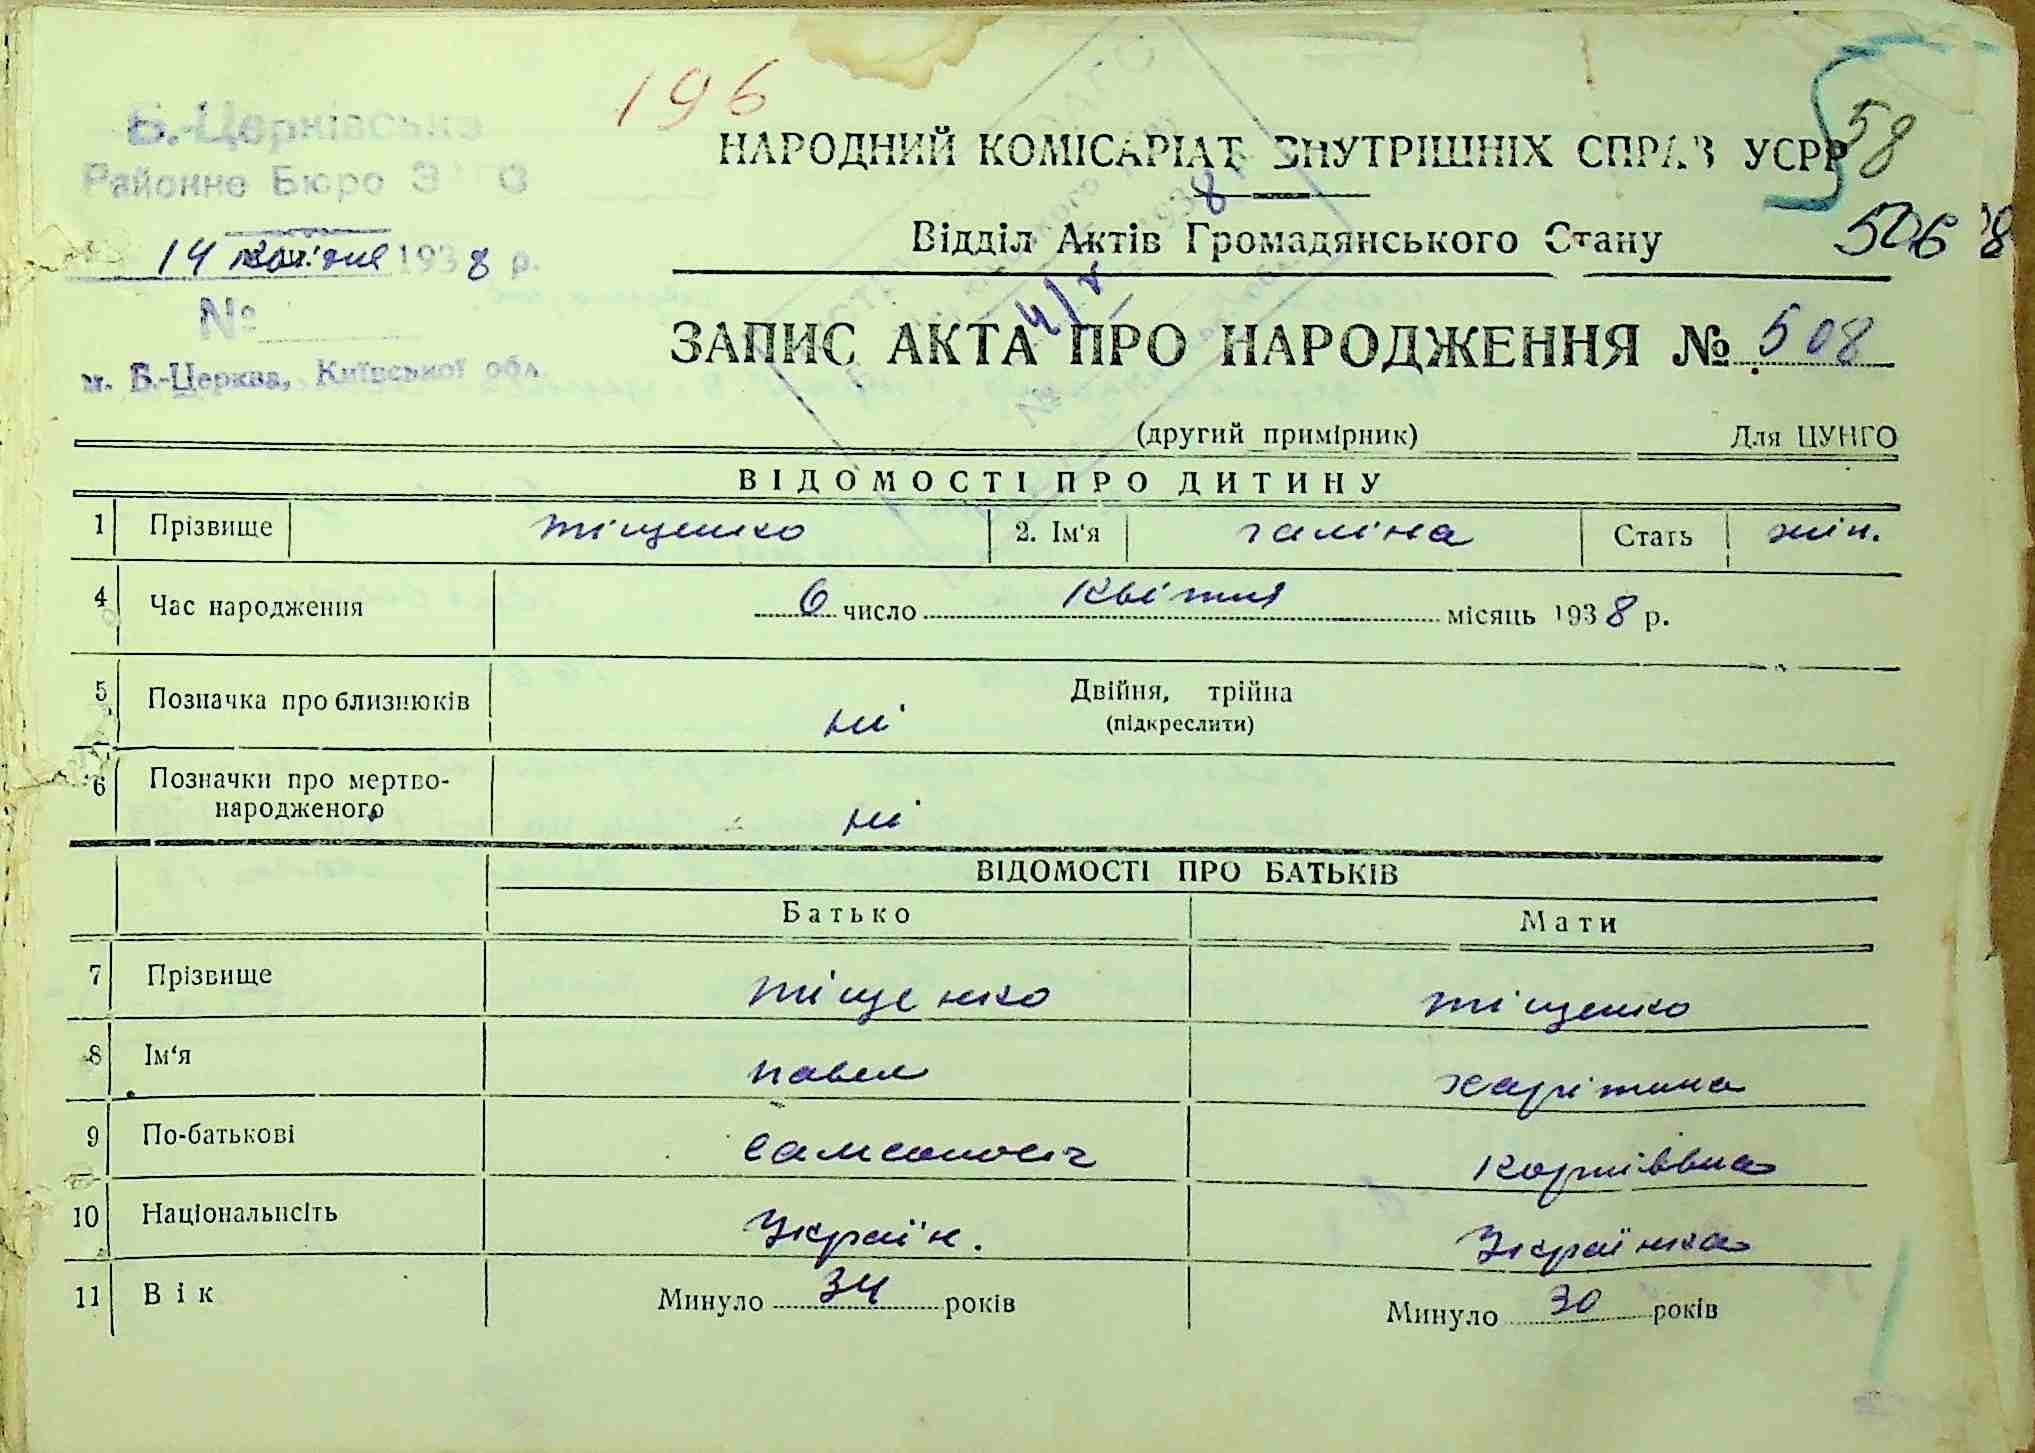 196
Б.-Церківське
Районне Бюро ЗАГС
14 квітня 1938 р.
№
м. Б.-Церква, Київської обл.
58
НАРОДНИЙ КОМІСАРІАТ ВНУТРІШНІХ СПРАВ УСРР
Відділ Актів Громадянського Стану
506
ЗАПИС АКТА ПРО НАРОДЖЕННЯ № 508
(другий примірник) Для ЦУНГО
ВІДОМОСТІ ПРО ДИТИНУ
1 Прізвище тіщенко 2. Ім'я галіна Стать жін.
4 Час народження 6 число квітня місяць 1938 р.
5 Позначка про близнюків ні Двійня, трійна
(підкреслити)
6 Позначки про мертво-
народженого ні
ВІДОМОСТІ ПРО БАТЬКІВ
Батько Мати
7 Прізвище тіщенко тіщенко
8 Ім'я павел харітина
9 По-батькові самсонович корніівна
10 Національність Україн. Українка
11 Вік Минуло 34 років Минуло 30 років